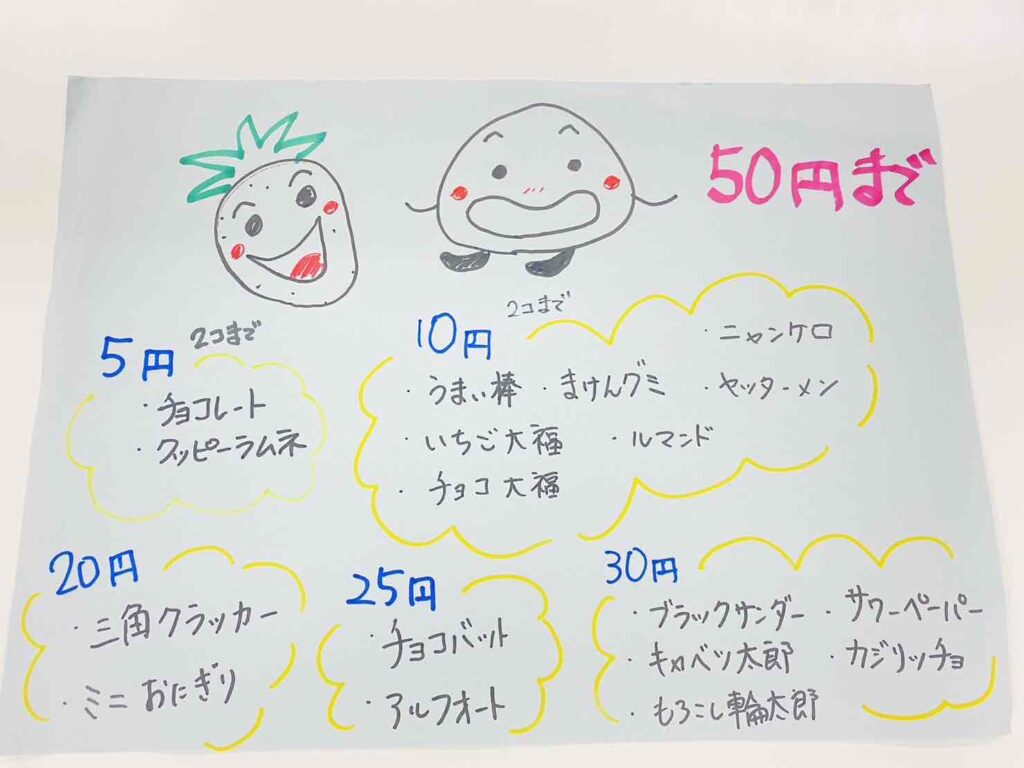 50円まで
5円 2コまで
・チョコレート
・クッピーラムネ
10円 2コまで
・ニャンケロ
・うまい棒 ・まけんグミ ・ヤッターメン
・いちご大福 ・ルマンド
・チョコ大福
20円
・三角クラッカー
・ミニおにぎり
25円
・チョコバット
・アルフォート
30円
・ブラックサンダー ・サワーペーパー
・キャベツ太郎 ・カジリッチョ
・もろこし輪太郎